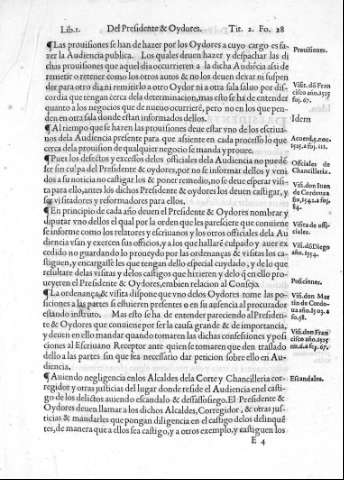 Lib.1. Del Presidente & Oydores. Tit. 2. Fo. 28
¶Las prouisiones se han de hazer por los Oydores a cuyo cargo es fa-
zer la Audiencia publica. Los quales deuen hazer y despachar las di
chas prouisiones que aquel dia occurrieren a la dicha Audiēcia assi de
remetir o retener como los otros autos & no los deuen dexar ni suspen
der para otro dia ni remitirlo a otro Oydor ni a otra sala saluo por dis-
cordia que tengan cerca dela determinacion, mas esto se ha de entender
quanto a los negocios que de nueuo ocurrierē, pero no en los que pen-
den en otra sala donde estan informados dellos.
¶Al tiempo que se hazen las prouisiones deue estar vno de los escriua-
nos dela Audiencia presente para que assiente en cada processo lo que
cerca dela prouision de qualquier negocio se manda y prouee.
¶Pues los defectos y excessos delos officiales dela Audiencia no puedē
ser sin culpa del Presidente & oydores, por no se informar dellos y veni
dos a su noticia no castigar los & poner remedio, no se deue esperar visi-
ta para ello, antes los dichos Presidente & oydores los deuen castigar, y
ser visitadores y reformadores para ellos.
¶En principio de cada año deuen el Presidente & Oydores nombrar y
diputar vno dellos el qual por la orden que les paresciere que conuiene
se informe como los relatores y escriuanos y los otros officiales dela Au
diencia vsan y exercen sus officios, y a los que hallarē culpado y auer ex
cedido no guardando lo proueydo por las ordenanças & visitas los ca-
stiguen, y encarguesele les que tengan dello especial cuydado, y de lo que
resultare delas visitas y delos castigos que hizieren y delo q̃ en ello pro-
ueyeren el Presidente & Oydores, embien relacion al Consejo.
¶La ordenança, & visita dispone que vno delos Oydores tome las po-
siciones a las partes si estuuieren presentes o en su ausencia al procurador
estando instruto. Mas esto se ha de entender paresciendo al Presiden-
te & Oydores que conuiene por ser la causa grande & de importancia,
y deuen en ello mandar quando tomaren las dichas confessiones y posi
ciones al Escriuano Receptor ante quien se tomaren que den traslado
dello a las partes sin que sea necessario dar peticion sobre ello en Au-
diencia.
¶Auiendo negligencia en los Alcaldes dela Corte y Chancilleria cor-
regidor y otras justicias del lugar donde reside el Audiencia en el casti-
go de los delictos auiendo escandalo & dessassossiego. El Presidente &
Oydores deuen llamar a los dichos Alcaldes, Corregidor, & otras jus-
ticias & mandarles que pongan diligencia en el castigo delos delinquē
tes, de manera que a ellos sea castigo, y a otros exemplo, y castiguen los
E 4
Prouisiones.
Idem
Officiales de
Chancilleria.
Visita de offi-
ciales.
Posiciones.
Escandalos.